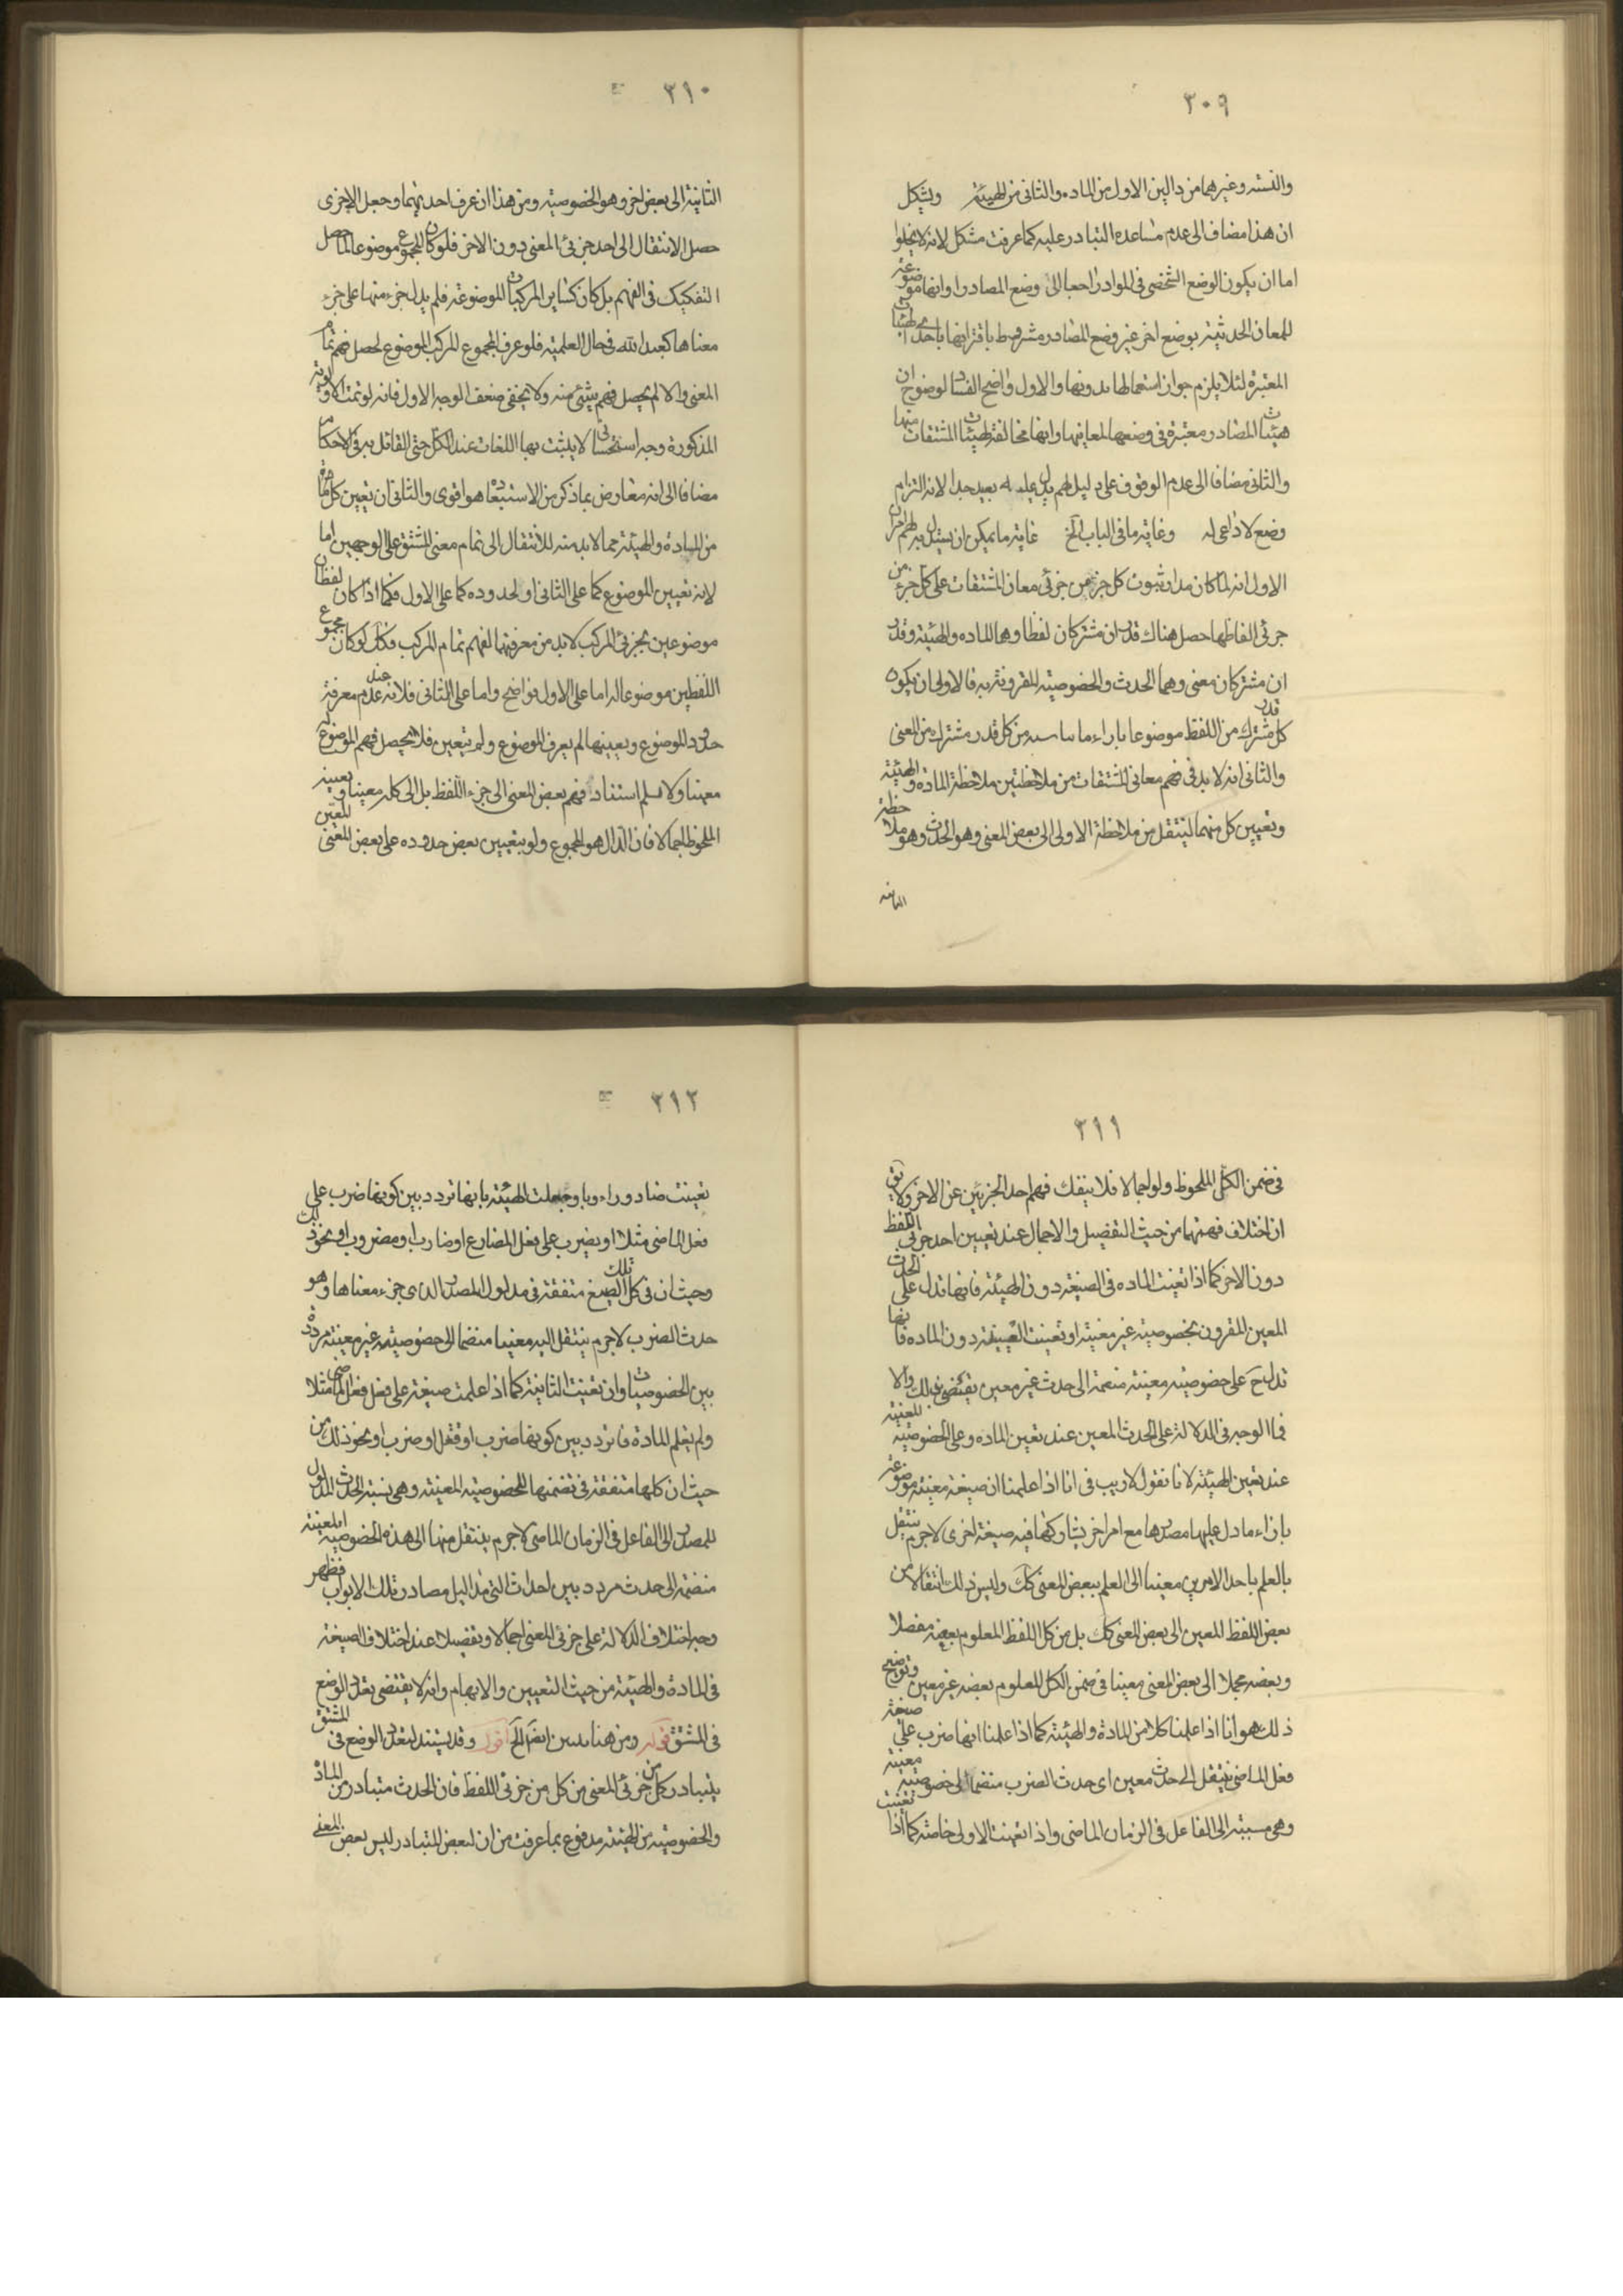 ٣٠٩
والنسبه وغيرهما من دالين الاول من الماده والثانى من الهيئة ويشكل
ان هذا مضاف الى عدم مساعده التبادر عليه كما عرفت مشكل لانه لا يخلوا
اما ان يكون الوضع الشخصى فى المواد راجعا الى وضع المصادر او انها موضوعة
للمعان الحدثية بوضع اخر غير وضع المصادر مشروط باقترانها باحدى الهيئات
المعتبرة لئلا يلزم جواز استعمالها بدونها والاول واضح الفساد لوضوح ان
هيئات المصادر معتبرة فى وضعها لمعانيها وانها مخالفة لهيئات المشتقات منها
والثانى مضافا الى عدم الوقوف على دليل لهم يدل عليه بعيد جدا لانه التزام
وضع لا داعى له وغاية ما فى الباب الخ غاية ما يمكن ان يستدل به لهم امران
الاول انه لما كان مدار ثبوت كل جزء من جزئى معان المشتقات على كل جزء من
جزئى الفاظها حصل هناك قدران مشتركان لفظا وهما الماده والهيئة وقدر
ان مشتركان معنى وهما الحدث والخصوصية المقرونة به فالاولى ان يكون
كل قدر مشترك من اللفظ موضوعا بازاء ما يناسبه من كل قدر مشترك من المعنى
والثانى انه لا بد فى فهم معانى المشتقات من ملاحظتين ملاحظة المادة والهيئة
وتعيين كل منهما لينتقل من ملاحظة الاولى الى بعض المعنى وهو الحدث وهو ملاحظة
الثانية
٣١٠
الثانية الى بعض اخر وهو الخصوصية ومن هذا ان عرف احديهما وجعل الاخرى
حصل الانتقال الى احد جزئى المعنى دون الاخر فلو كان المجموع موضوعا لما حصل
التفكيك فى الفهم بل كان كساير المركبات الموضوعة فلم يدل جزء منها على جزء
معناها كعبد الله فى حال العلمية فلو عرف المجموع المركب الموضوع لحصل فهم تمام
المعنى والا لم يحصل فهم شيئ منه ولا يخفى ضعف الوجه الاول فانه لو تمت الاولوية
المذكورة وجه استحسانى لا يثبت بها اللغات عند الكل حتى القائل به فى الاحكام
مضافا الى انه معارض بما ذكر من الاستبعاد هو اقوى والثانى ان تعيين كل
من المادة والهيئة مما لا بد منه للانتقال الى تمام معنى المشتق على الوجهين اما
لانه تعيين الموضوع كما على الثانى او لحدوده كما على الاول فكما اذا كان لفظان
موضوعين بجزئى المركب لا بد من معرفتهما لفهم تمام المركب فكك لو كان مجموع
اللفظين موضوعا له اما على الاول فواضح واما على الثانى فلانه عند عدم معرفة
حدود الموضوع وتعيينها لم يعرف الموضوع ولم يتعين فلا يحصل فهم الموضوع له
معينا ولا نسلم استناد فهم بعض المعنى الى جزء اللفظ بل الى كله معينا وتعيينه
الملحوظ اجمالا فان الدال هو المجموع ولو بتعيين بعض حدوده على بعض المعنى المعين
٣١١
فى ضمن الكل الملحوظ ولو اجمالا فلا ينفك فهم احد الجزئين عن الاخر ولا يق
ان اختلاف فهمهما من حيث التفصيل والاجمال عند تعيين احد جزئى اللفظ
دون الاخر كما اذا تعينت الماده فى الصيغة دون الهيئة فانها تدل على الحدث
المعين المقرون بخصوصية غير معينة او تعينت الصيغة دون الماده فانها
تدل ح على خصوصية معينة منضمة الى حدث غير معين يقتضى ذلك والا
فما الوجه فى الدلالة على الحدث المعين عند تعين الماده وعلى الخصوصية المعينة
عند تعين الهيئة لانا نقول لا ريب فى انا اذا علمنا ان صيغة معينة موضوعة
بازاء ما دل عليها مصدرها مع امر اخر يشاركها فيه صيغة اخرى لاجرم ننتقل
بالعلم باحد الامرين معينا الى العلم ببعض المعنى كك وليس ذلك انتقالا من
بعض اللفظ المعين الى بعض المعنى كك بل من كل اللفظ المعلوم بعضه مفصلا
وبعضه مجملا الى بعض المعنى معينا فى ضمن الكل المعلوم بعضه غير معين وتوضيح
ذلك هو انا اذا علمنا كلا من المادة والهيئة كما اذا علمنا انها ضرب على صيغة
فعل الماضى ننتقل الى حدث معين اى حدث الضرب منضما الى خصوصية معينة
وهى نسبته الى الفاعل فى الزمان الماضى واذا تعينت الاولى خاصة كما اذا تعينت
٣١٢
تعينت ضاد وراء وبا وجهلت الهيئة بانها تردد بين كونها ضرب على
فعل الماضى مثلا او يضرب على يفعل المضارع او ضارب او مضروب او نحو ذلك
وحيث ان فى كل تلك الصيغ متفقة فى مدلول المصدر الذى جزء معناها وهو
حدث الضرب لاجرم ينتقل اليه معينا منضما الى خصوصية غير معينة مرددة
بين الخصوصيات وان تعينت الثانية كما اذا علمت صيغة على فعل فعل الماضى مثلا
ولم يعلم المادة فا تردد بين كونها ضرب او قتل او ضرب او نحو ذلك من
حيث ان كلها متفقة فى تضمنها للخصوصية المعينة وهى نسبة الحدث المدلول
للمصدر الى الفاعل فى الزمان الماضى لاجرم ينتقل منها الى هذه الخصوصية المعينة
منضمة الى حدث مردد بين احداث التى مداليل مصادر تلك الابواب فظهر
وجه اختلاف الدلالة على جزئى المعنى اجمالا وتفصيلا عند اختلاف الصيغة
فى المادة والهيئة من حيث التعيين والابهام وانه لا يقتضى تعدد الوضع
فى المشتق قوله ومن هنا يتبين ايضا الخ اقول وقد يستند لتعدد الوضع فى المشتق
بتبادر كل من جزئى المعنى من كل من جزئى اللفظ فان الحدث متبادر من المادة
والخصوصية من الهيئة مدفوع بما عرفت من ان لبعض المتبادر ليس بعض المعنى